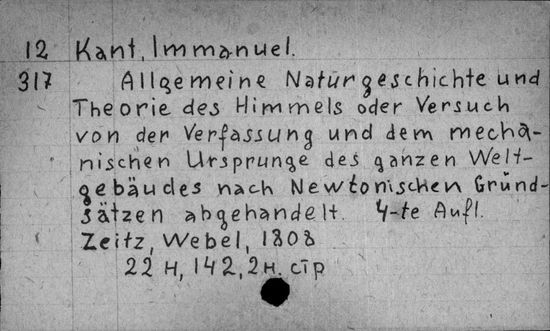 12 Kant, Immanuel.
317 Allgemeine Naturgeschichte und
Theorie des Himmels oder Versuch
von der Verfassung und dem mechä-
nischen Ursprunge des ganzen Welt-
gebäudes nach Newtonischen Gründ-
sätzen abgehandelt. 4-te Aufl.
Zeitz, Webel, 1808
22 н, 142, 2н. стр